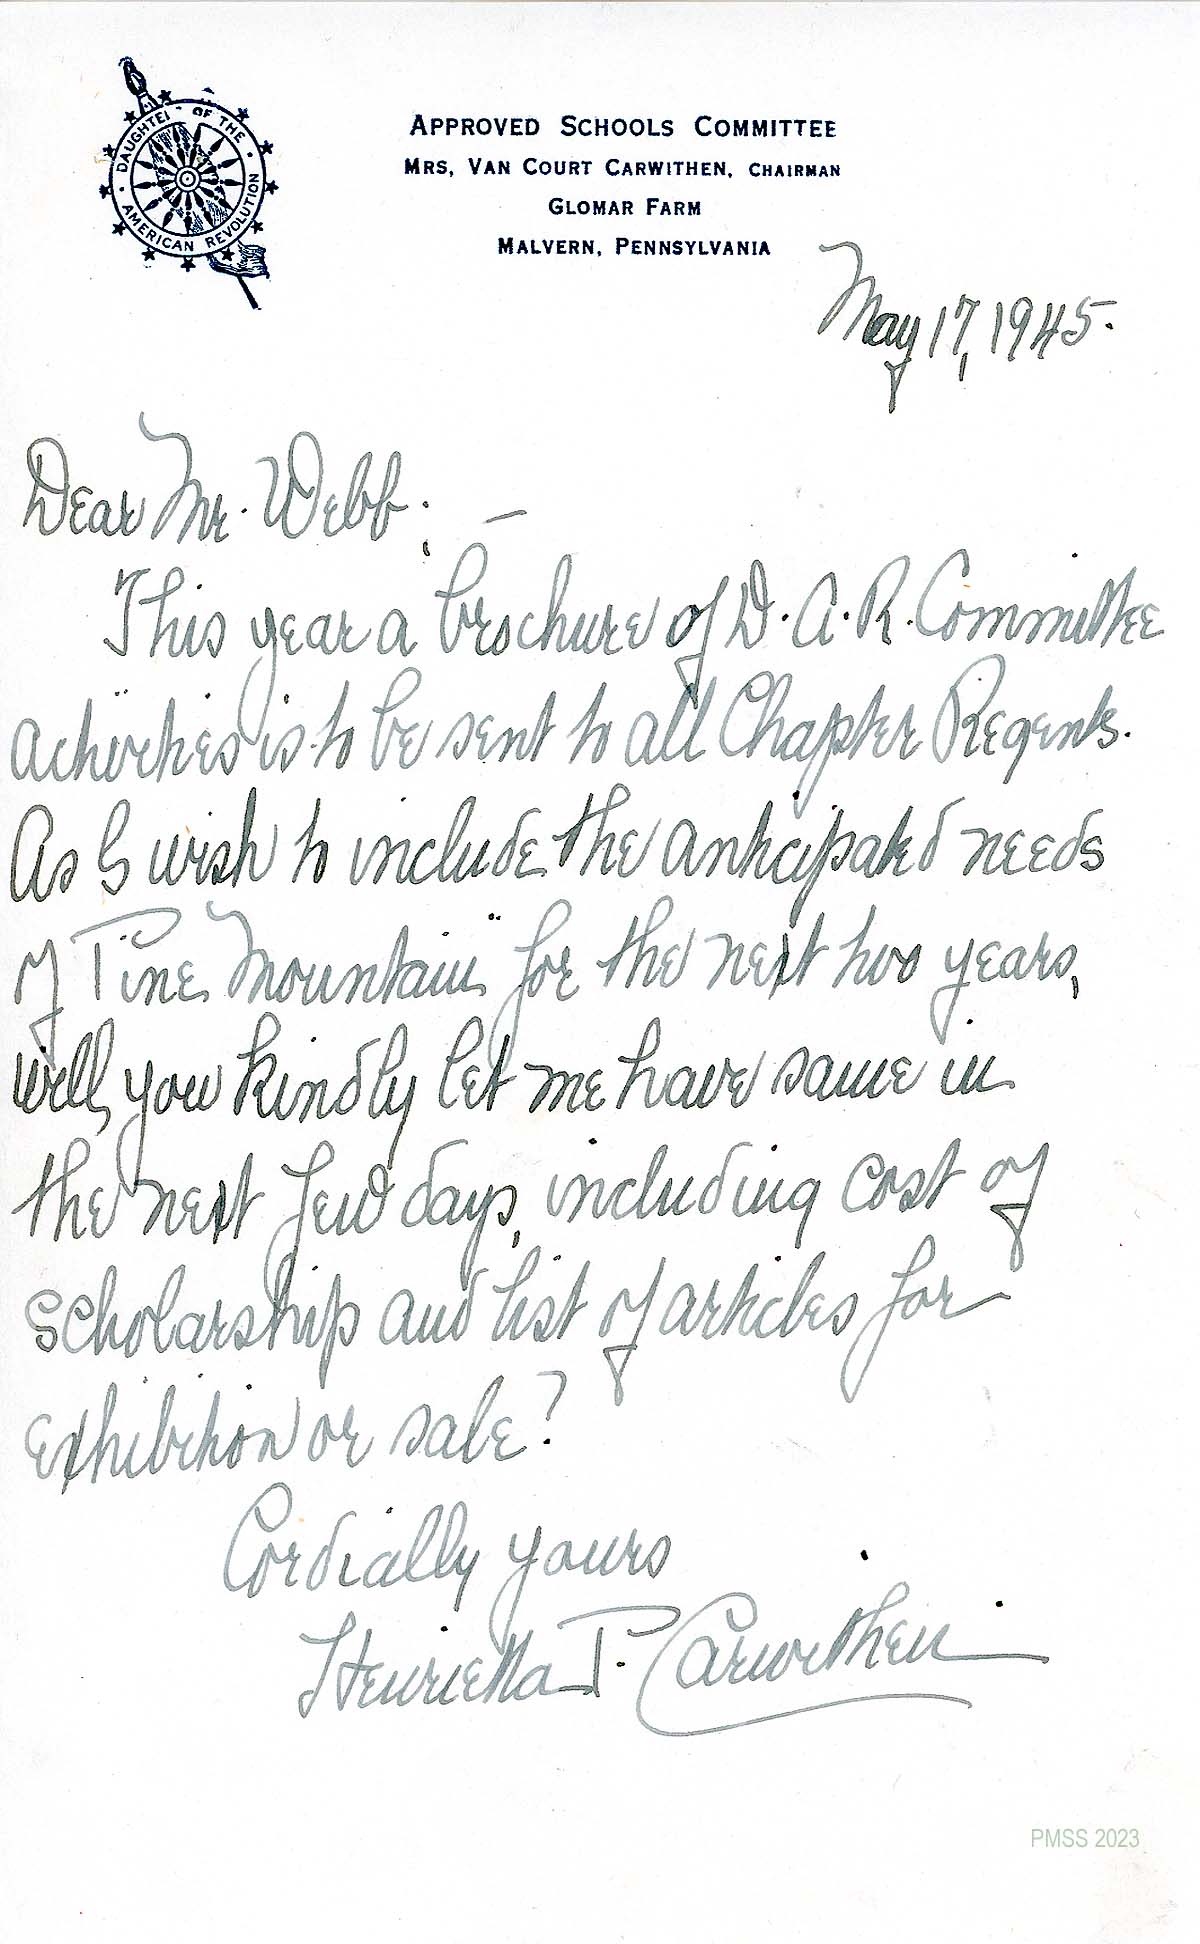 DAUGHTERS OF THE
AMERICAN REVOLUTION
APPROVED SCHOOLS COMMITTEE
MRS. VAN COURT CARWITHEN, CHAIRMAN
GLOMAR FARM
MALVERN, PENNSYLVANIA
May 17, 1945.
Dear Mr. Webb: —
This year a brochure of D.A.R. Committee
activities is to be sent to all Chapter Regents.
As I wish to include the anticipated needs
of Pine Mountain for the next two years,
will you kindly let me have same in
the next few days, including cost of
scholarship and list of articles for
exhibition or sale?
Cordially yours
Henrietta P. Carwithen
PMSS 2023